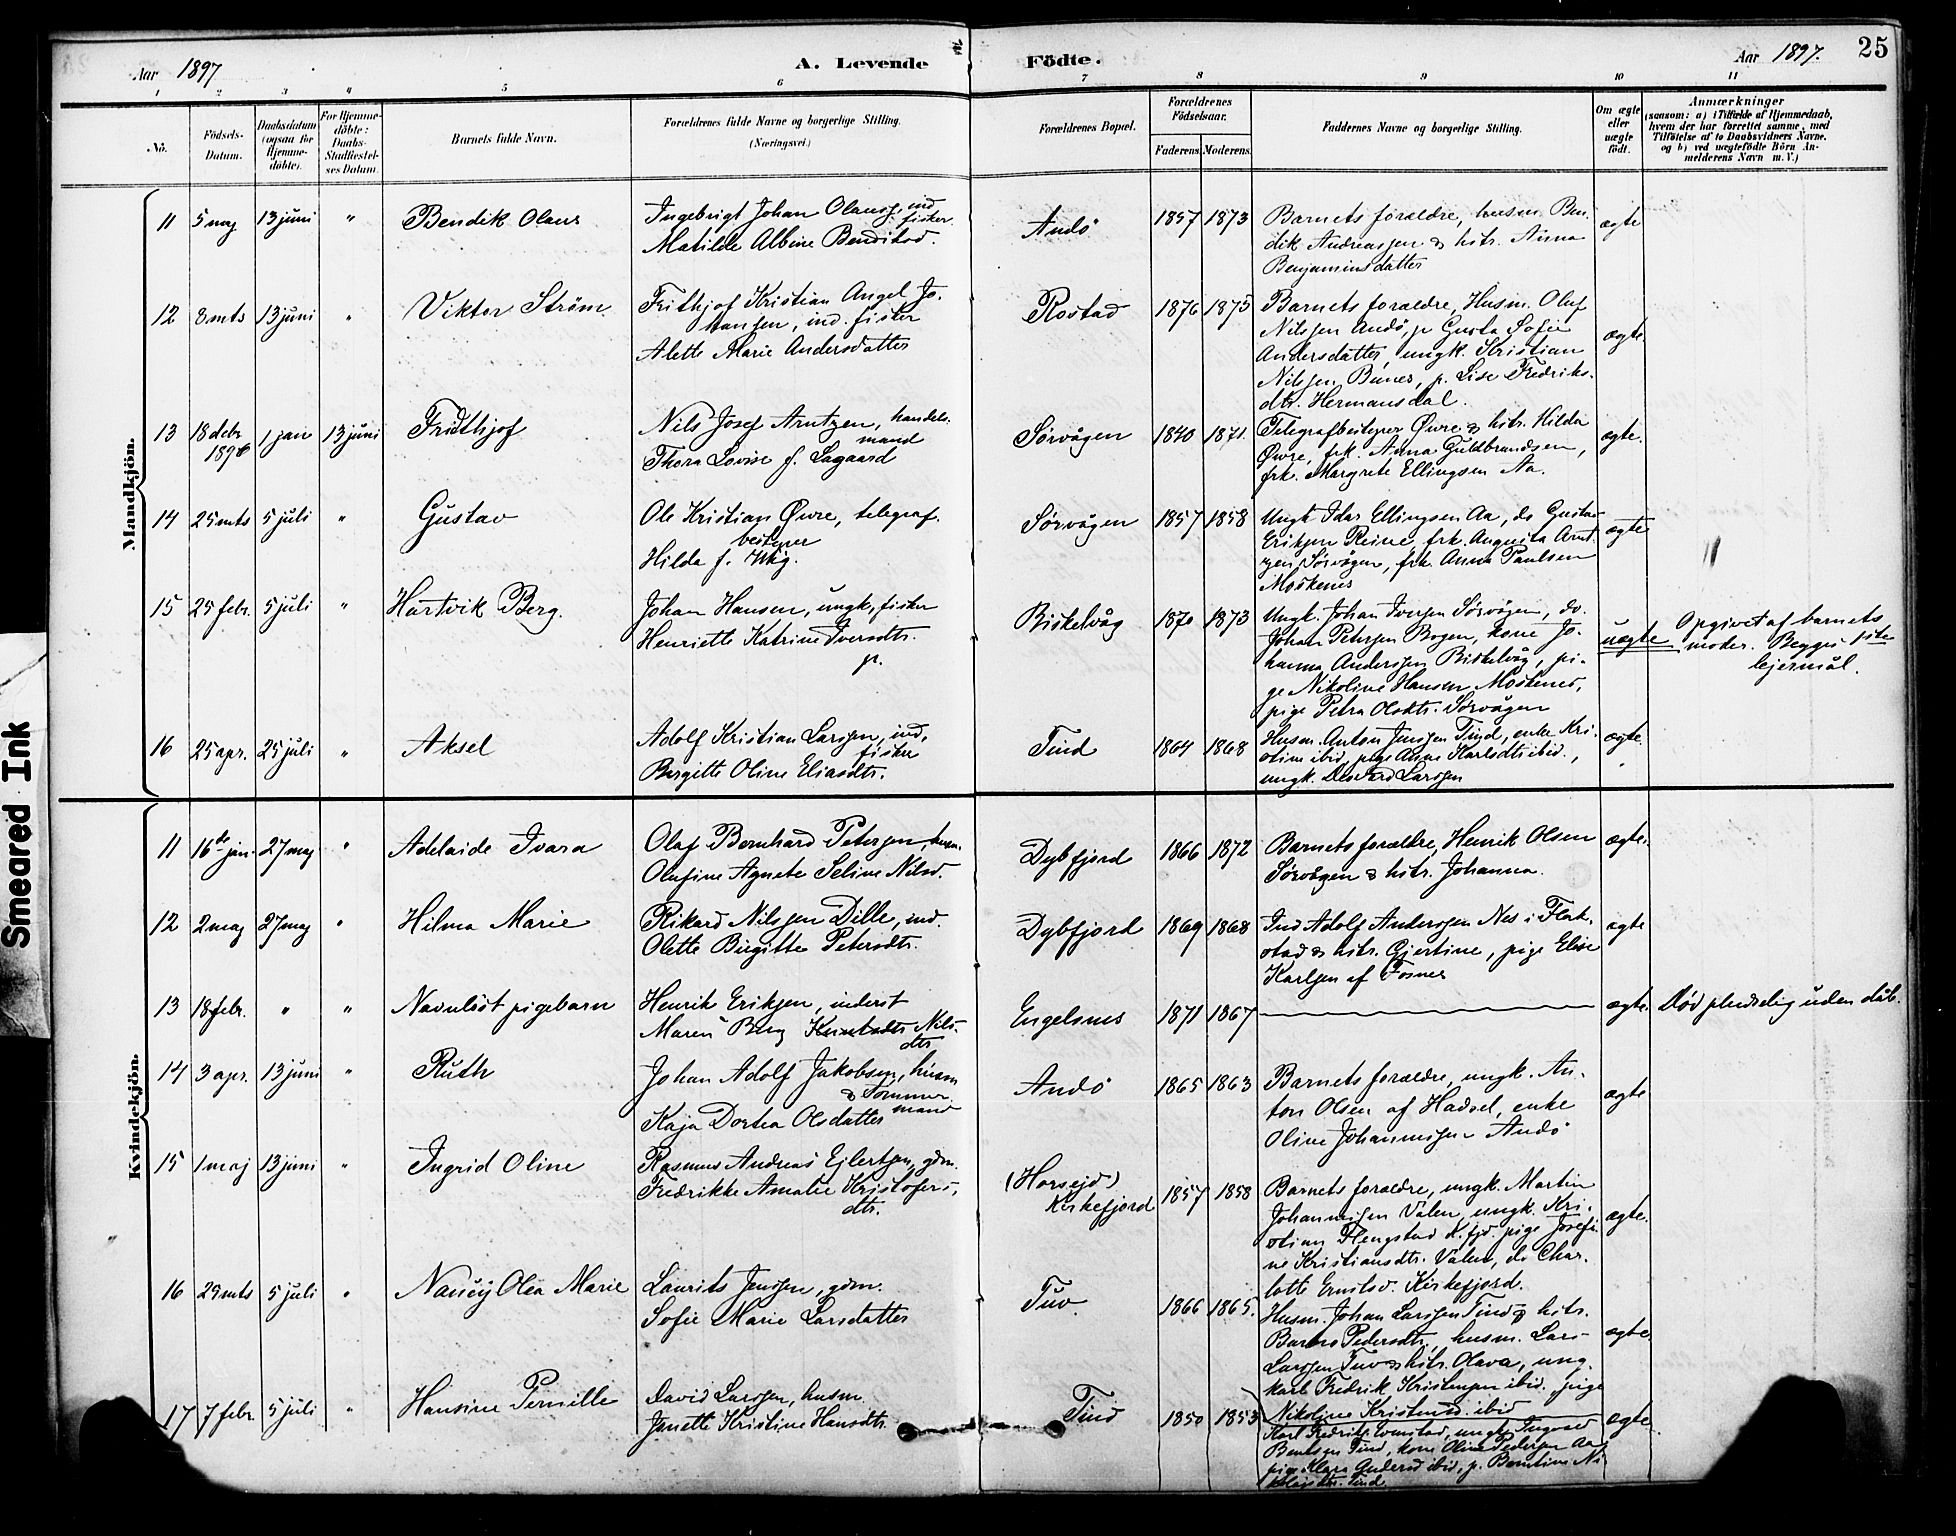 Aar 1897
A. Levende
Födte.
Aar 1897.
25
1 2 3 4 5 6 7 8 9 10 11
No.
Födsels-Datum.
Daabsdatum (ogsaa for Hjemmedöbte).
For Hjemmedöbte: Daabs-Stadfæstelses Datum.
Barnets fulde Navn.
Forældrenes fulde Navne og borgerlige Stilling. (Næringsvei.)
Forældrenes Bopæl.
Forældrenes Födselsaar.
Faderens. Moderens.
Faddernes Navne og borgerlige Stilling.
Om ægte eller uægte födt.
Anmærkninger
(saasom: a) i Tilfælde af Hjemmedaab,
hvem der har forrettet samme, med
Tilföielse af to Daabsvidners Navne.
og b) ved uægtefödte Börn An-
melderens Navn m. V.)
Mandkjön.
11 5 maj 13 juni " Bendik Olaus
Ingebrigt Johan Olaussen, ind. fisker
Matilde Albine Bendiksd.
Andö 1857 1873
Barnets forældre, husm. Ben-
dik Andreassen & hstr. Anna
Benjaminsdatter
ægte
12 8 mts 13 juni " Viktor Ström
Frithjof Kristian Angel Jo-
hansen, ind. fisker
Alette Marie Andersdatter
Rostad 1876 1875
Barnets forældre, Husm. Oluf
Nilssen Andö, p. Gusta Sofie
Andersdatter, ungk. Kristian
Nilssen Bunes, p. Lise Fredriks-
dtr. Hermansdal.
ægte.
13 18 debr 1896 1 jan 13 juni Fridthjof
Nils Josef Arntzen, handels-
mand
Thora Lovise f. Lagaard
Sørvågen 1840 1871.
Telegrafbestyrer Øvre & hstr. Hilda
Øvre, frk. Anna Guldbrandsen,
frk. Margrete Ellingsen Aa.
ægte.
14 25 mts 5 juli " Gustav
Ole Kristian Øvre, telegraf-
bestyrer
Hilda f. Wiig.
Sørvågen 1857 1858
Ungk. Idar Ellingsen Aa, do Gustav
Eriksen Reine, frk. Augusta Arnt-
zen Sørvågen, frk. Anna Paulsen
Moskenes
ægte
15 25 febr. 5 juli " Hartvik Berg.
Johan Hansen, ungk., fisker
Henriette Katrine Iversdtr.
p.
Biskelvåg 1870 1873
Ungk. Johan Iversen Sörvågen, do.
Johan Petersen Bogen, kone Jo-
hanna Anderssen Biskelvåg, pi-
ge Nikoline Hansen Moskenes,
pige Petra Olsdtr. Sörvågen
uægte
Opgivet af barnets
moder. Begges 1ste
lejermål.
16 25 apr. 25 juli " Aksel
Adolf Kristian Larssen, ind.
fisker
Birgitte Oline Eliasdtr.
Tind 1864 1868
Husm. Anton Jenssen Tind, enke Kri-
stine ibid, pige Anne Karlsdtr ibid.,
ungk. Larssen
ægte.
Kvindekjön.
11 16de jan. 27 maj " Adelaide Ivara
Olaf Bernhard Petersen, husm.
Olufine Agnete Seline Nilsd.
Dybfjord 1866 1872
Barnets forældre, Henrik Olsen
Sörvågen & hstr. Johanna.
ægte.
12 2 maj 27 maj " Hilma Marie
Rikard Nilssen Dille, ind.
Olette Birgitte Petersdtr.
Dybfjord 1869 1868
Ind Adolf Anderssen Nes i Flak-
stad & hstr. Gjertine, pige Elise
Karlsen af Fosnes
ægte
13 18 febr. " " Navnlöst pigebarn
Henrik Eriksen, inderst
Maren Berg Knutsdtr Nils-
dtr.
Engelsnes 1871 1867
ægte.
Död pludselig uden dåb.
14 3 apr. 13 juni " Ruth
Johan Adolf Jakobsen, husm
& Tömmer-
mand
Kaja Dortea Olsdatter
Andö 1865 1863
Barnets forældre, ungk. An-
ton Olsen af Hadsel, enke
Oline Johannessen Andö
ægte
15 1 maj 13 juni " Ingrid Oline
Rasmus Andreas Ejlertsen, gdm.
Fredrikke Amalie Kristofers-
dtr.
(Horsejd)
Kirkefjord 1857 1858
Barnets forældre, ungk. Martin
Johannessen Valen, ungk. Kri-
stian Flengstad K.fjd. pige Josefi-
ne Kristiansdtr. Valen, do Char-
lotte Ernstsd. Kirkefjord.
ægte.
16 29 mts 5 juli " Nancy Olea Marie
Laurits Jenssen, gdm.
Sofie Marie Larsdatter
Tuv. 1866 1865.
Husm. Johan Larssen Tind & hstr.
Pedersdtr, husm. Lars
Larssen Tuv & hstr. Olava, ung-
karl Fredrik Kristensen ibid. pige
Nikoline Kristensd. ibid
ægte
17 7 febr. 5 juli " Hansine Pernille
David Larssen, husm.
Jenette Kristine Hansdtr.
Tind 1850 1853
Karl Fredrik, ungk. Ingvard
Tind, kone Oline Pedersen Aa
pige Klara ibid, p. Berntine Ni-
Tind
ægte.
Smeared Ink